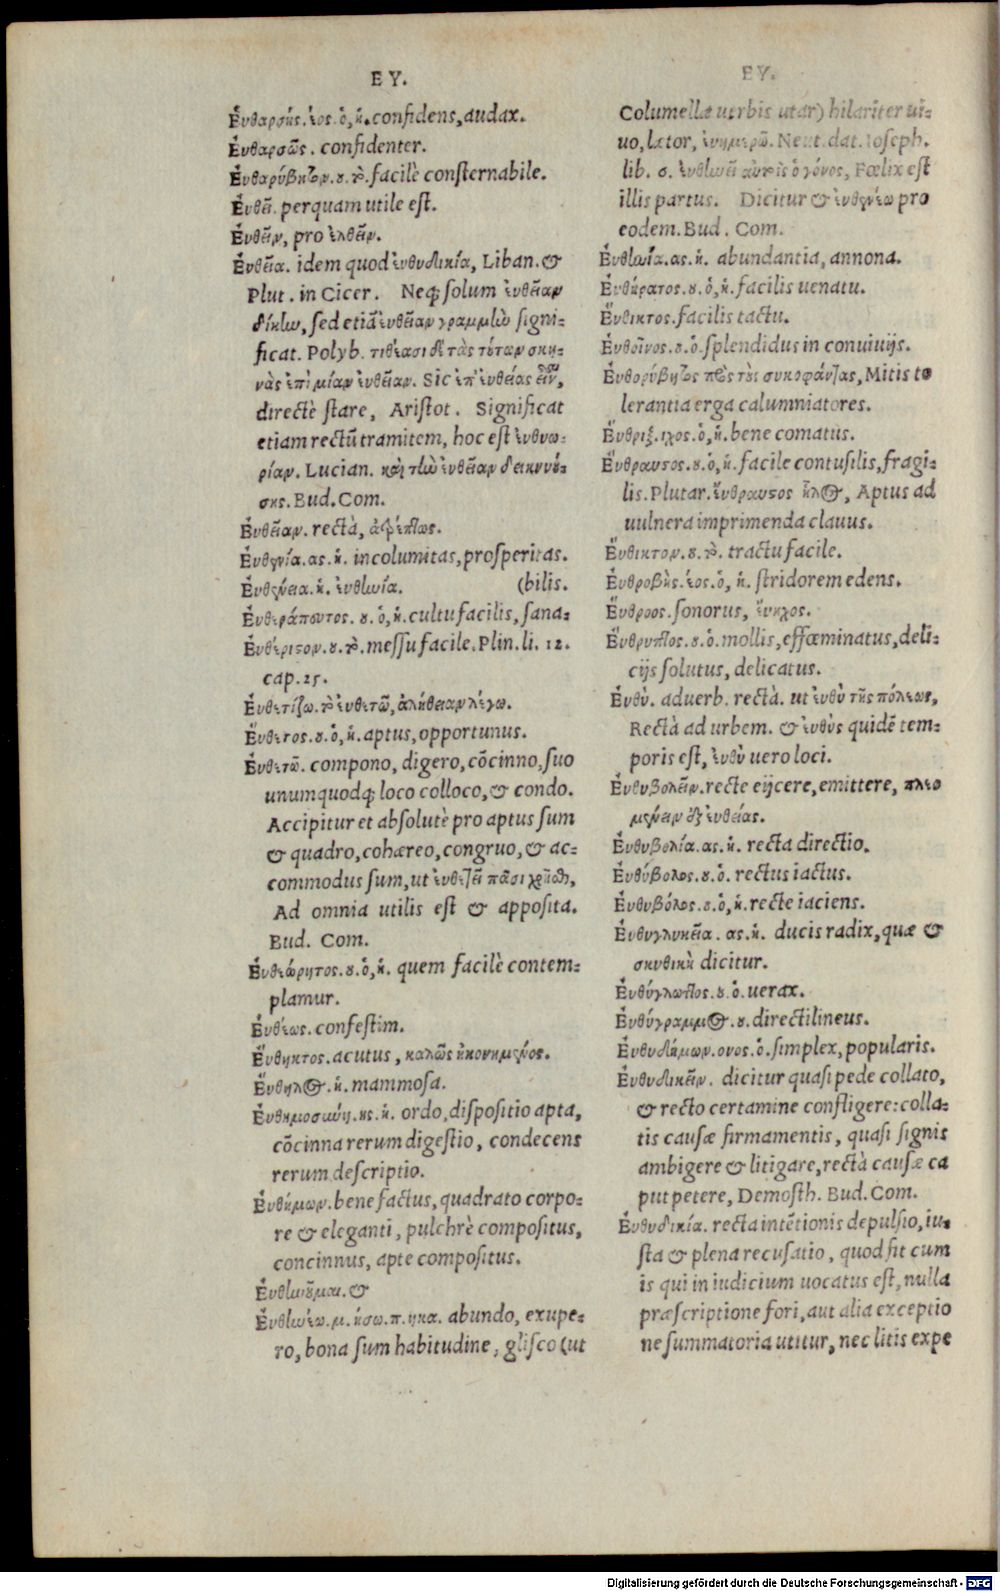 ΕΥ.
Εὐθαρσής.έος.ὁ,ἡ.confidens,audax.
Εὐθαρσῶς. confidenter.
Εὐθορύβητον.ου.τὸ.facilè consternabile.
Εὐθεῖ. perquam utile est.
Εὐθεῖν, pro ἐλθεῖν.
Εὐθεῖα. idem quod εὐθυδικία, Liban.&
Plut. in Cicer. Neq; solum εὐθεῖαν
δίκην, sed etiā εὐθεῖαν γραμμὴν signi-
ficat. Polyb. τιθέασι δὲ τὰς τούτων σκη-
νὰς ἐπὶ μίαν εὐθεῖαν. Sic ἐπ' εὐθείας εἶναι,
directè stare, Aristot. Significat
etiam rectū tramitem, hoc est εὐθυω-
ρίαν. Lucian. καὶ τὴν εὐθεῖαν δεικνυού-
σης. Bud. Com.
Εὐθεῖαν. rectà, ἀπρέπτως.
Εὐθενία.ας.ἡ. incolumitas, prosperitas.
Εὐθένεια.ἡ. εὐθηνία. (bilis.
Εὐθεράπευτος.ου.ὁ,ἡ.cultu facilis, sana-
Εὐθέριστον.ου.τὸ.messu facile.Plin.li. 12.
cap.25.
Εὐθετίζω.τὸ εὐθετῶ, ἀλήθειαν λέγω.
Εὔθετος.ου.ὁ,ἡ.aptus,opportunus.
Εὐθετῶ. compono, digero, cōcinno, suo
unumquodq; loco colloco, & condo.
Accipitur et absolutè pro aptus sum
& quadro, cohæreo, congruo, & ac-
commodus sum, ut εὐθετεῖ πᾶσι χρῆσθαι,
Ad omnia utilis est & apposita.
Bud. Com.
Εὐθεώρητος.ου.ὁ,ἡ. quem facilè contem-
plamur.
Εὐθέως. confestim.
Εὔθηκτος. acutus, καλῶς ἠκονημένος.
Εὔθηλος.ἡ. mammosa.
Εὐθημοσύνη.ης.ἡ. ordo, dispositio apta,
cōcinna rerum digestio, condecens
rerum descriptio.
Εὐθήμων. bene factus, quadrato corpo-
re & eleganti, pulchrè compositus,
concinnus, apte compositus.
Εὐθηνοῦμαι. &
Εὐθηνέω.μ.ήσω.π.ηκα. abundo, exupe-
ro, bona sum habitudine, glisco (ut
ΕΥ.
Columellæ uerbis utar) hilariter ui-
uo, lætor, εὐημερῶ. Neut. dat. Ioseph.
lib. σ. εὐθηνεῖ αὐτοῖς ὁ γόνος, Fœlix est
illis partus. Dicitur & εὐθενέω pro
eodem. Bud. Com.
Εὐθηνία.ας.ἡ. abundantia, annona.
Εὐθήρατος.ου.ὁ,ἡ.facilis uenatu.
Εὔθικτος.facilis tactu.
Εὐθοῖνος.ου.ὁ.splendidus in conuiuijs.
Εὐθορύβητος πρὸς τοὺς συκοφάντας, Mitis to
lerantia erga calumniatores.
Εὔθριξ.ιχος.ὁ,ἡ.bene comatus.
Εὔθραυστος.ου.ὁ,ἡ.facile contusilis, fragi-
lis.Plutar.εὔθραυστος ἧλος, Aptus ad
uulnera imprimenda clauus.
Εὔθικτον.ου.τὸ. tractu facile.
Εὐθροβής.έος.ὁ, ἡ.stridorem edens.
Εὔθροος.sonorus, εὔηχος.
Εὔθρυπτος.ου.ὁ.mollis, effœminatus, deli
cijs solutus, delicatus.
Εὐθύ. aduerb. rectà. ut εὐθὺ τῆς πόλεως,
Rectà ad urbem. & εὐθὺς quidē tem-
poris est, εὐθὺ uero loci.
Εὐθυβολεῖν.recte eijcere, emittere, πλεο
μένειν ἐξ εὐθείας.
Εὐθυβολία.ας.ἡ. recta directio.
Εὐθύβολος.ου.ὁ. rectus iactus.
Εὐθυβόλος.ου.ὁ,ἡ.recte iaciens.
Εὐθυγλυκεῖα.ας.ἡ. ducis radix, quæ &
σκυθικὴ dicitur.
Εὐθύγλωττος.ου.ὁ.uerax.
Εὐθύγραμμος.ου.directilineus.
Εὐθυδήμων.ονος.ὁ.simplex, popularis.
Εὐθυδικεῖν. dicitur quasi pede collato,
& recto certamine confligere: colla-
tis causæ firmamentis, quasi signis
ambigere & litigare, rectà causæ ca
put petere, Demosth. Bud. Com.
Εὐθυδικία. recta intētionis depulsio, iu-
sta & plena recusatio, quod fit cum
is qui in iudicium uocatus est, nulla
præscriptione fori, aut alia exceptio
ne summatoria utitur, nec litis expe
Digitalisierung gefördert durch die Deutsche Forschungsgemeinschaft - DFG